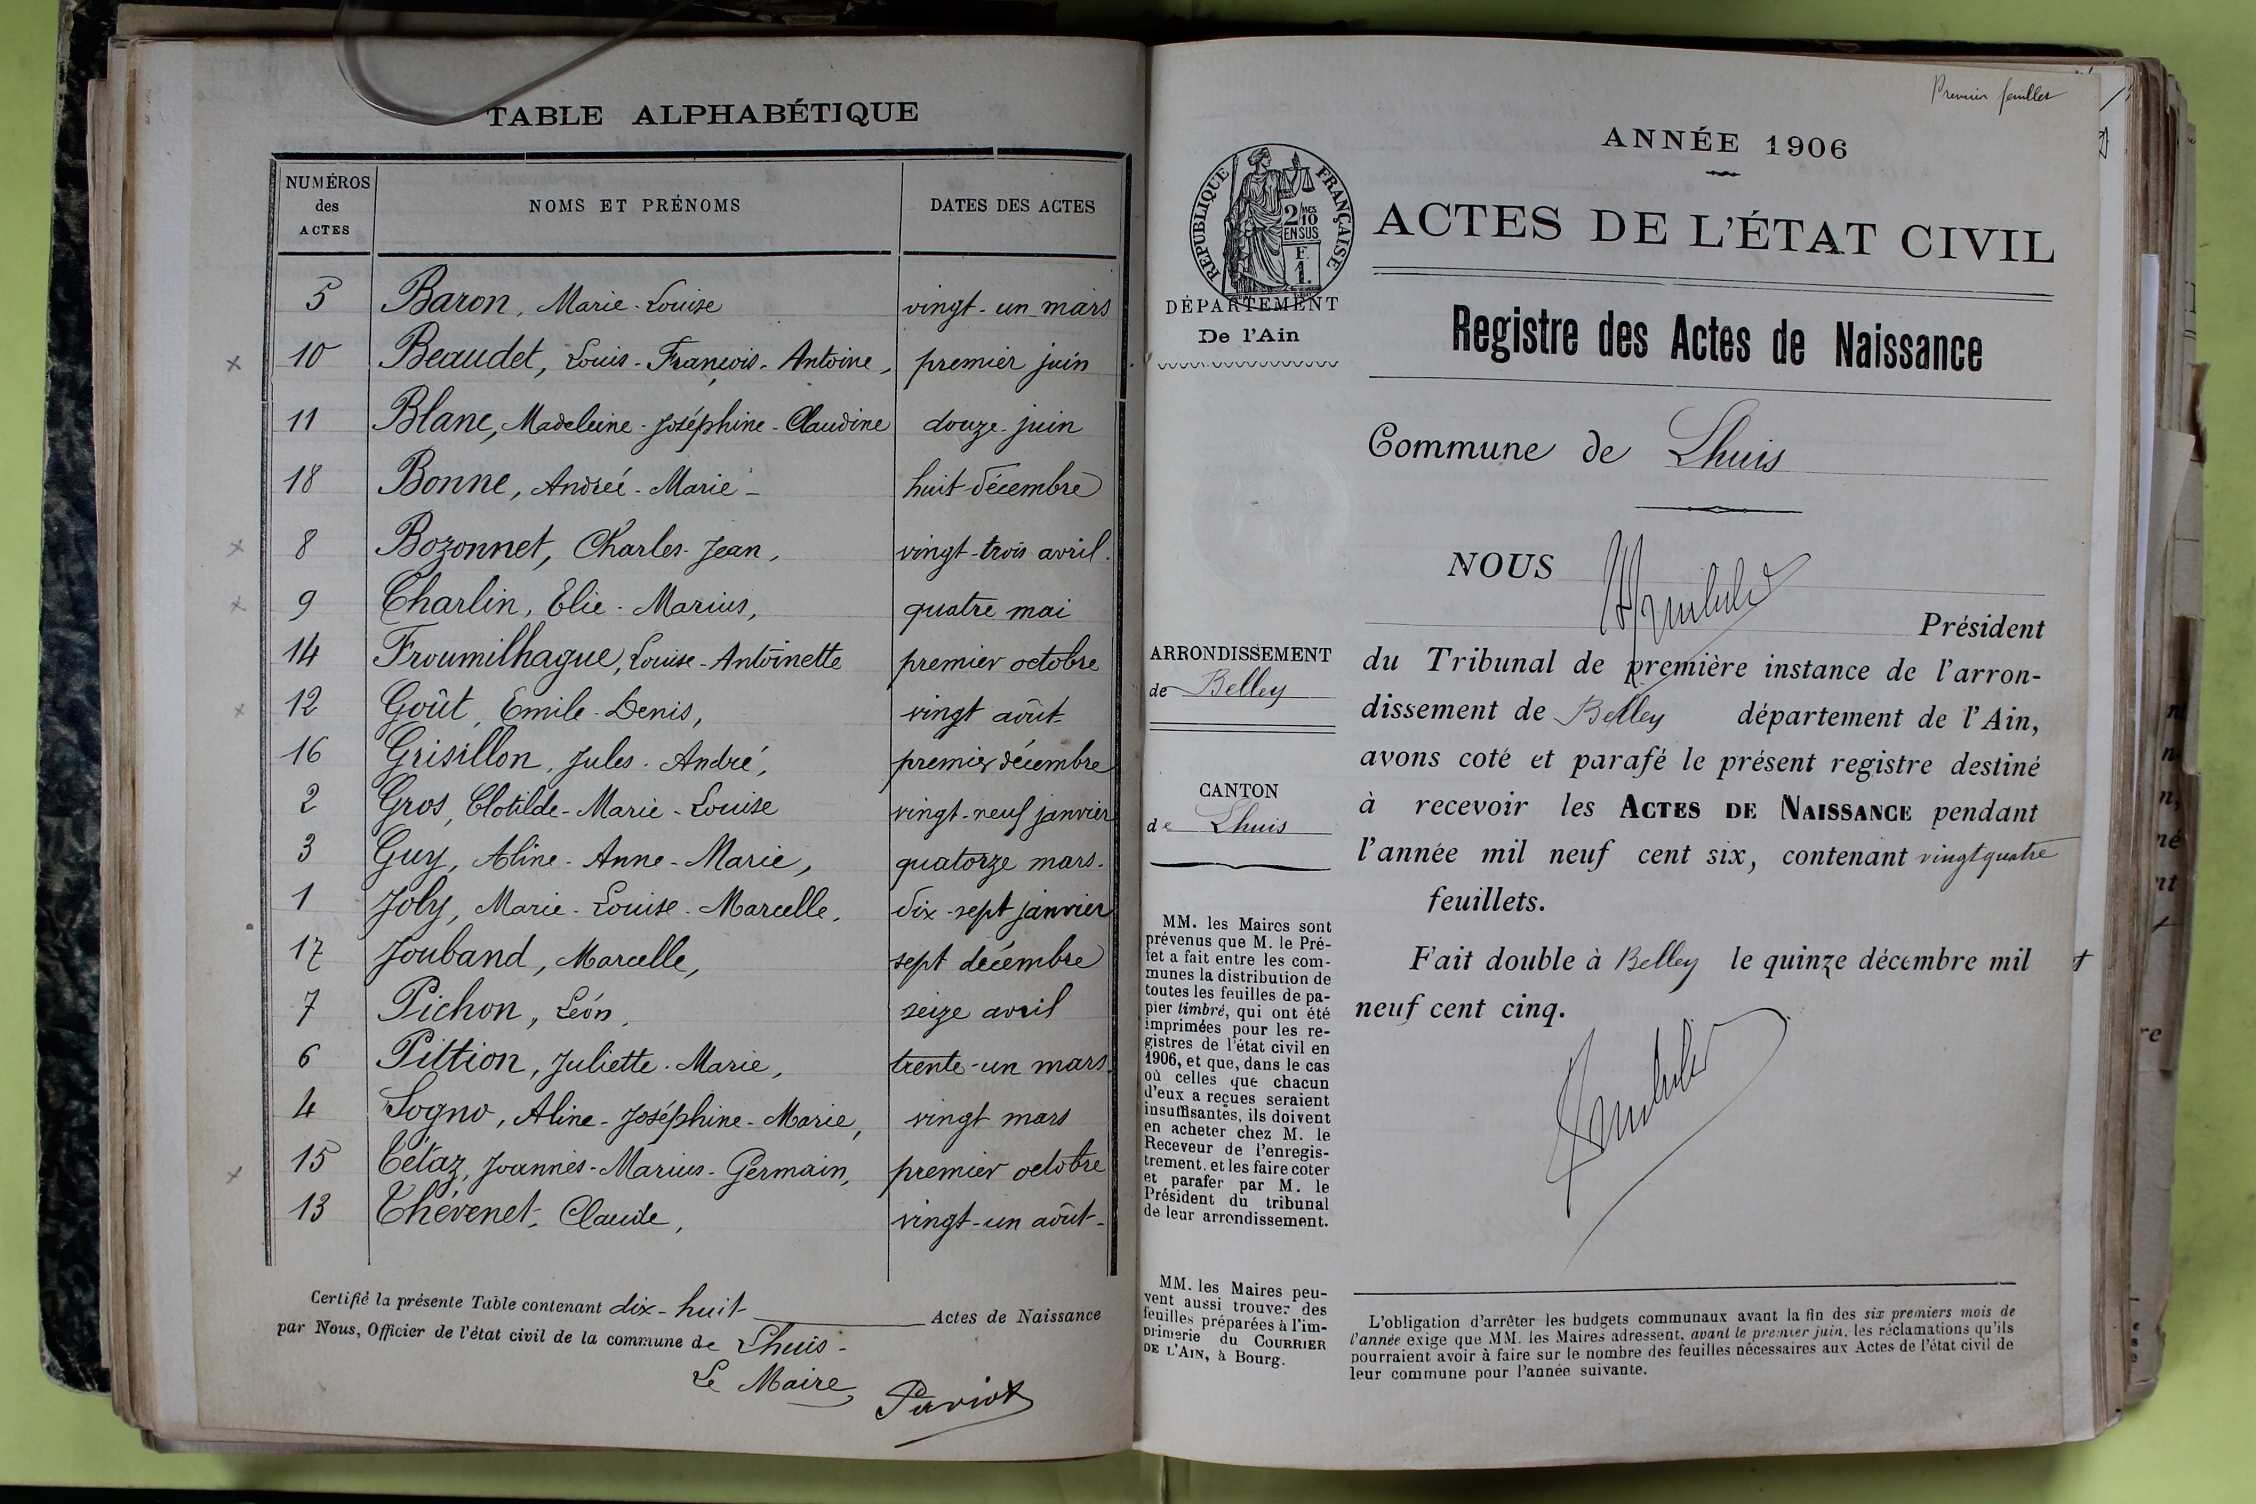 TABLE ALPHABÉTIQUE
NUMÉROS des ACTES
NOMS ET PRÉNOMS
DATES DES ACTES
5 Baron, Marie-Louise vingt-un mars
10 Beaudet, Louis-François-Antoine, premier juin
11 Blanc, Madeleine-Joséphine-Claudine douze juin
18 Bonne, Andreé-Marie- huit décembre
8 Bozonnet, Charles-Jean, vingt-trois avril.
9 Charlin, Elie-Marius, quatre mai
14 Froumilhague, Louise-Antoinette premier octobre
12 Goût, Emile-Denis, vingt août-
16 Grisillon, Jules-André, premier décembre
2 Gros, Clotilde-Marie-Louise vingt-neuf janvier
3 Guy, Aline-Anne-Marie, quatorze mars-
1 Joly, Marie-Louise-Marcelle, dix-sept janvier
17 Jouband, Marcelle, sept décembre
7 Pichon, Léon, seize avril
6 Pittion, Juliette-Marie, trente-un mars
4 Sogno, Aline-Joséphine-Marie, vingt mars
15 Tétaz, Joannès-Marius-Germain, premier octobre
13 Thévenet, Claude, vingt-un août-
Certifié la présente Table contenant dix-huit Actes de Naissance
par Nous, Officier de l'état civil de la commune de Lhuis-
Le Maire
Pariot
Premier feuillet
ANNÉE 1906
RÉPUBLIQUE FRANÇAISE
2/10
MES
EN SUS
F.
1.
ACTES DE L'ÉTAT CIVIL
DÉPARTEMENT
De l'Ain
Registre des Actes de Naissance
Commune de Lhuis
NOUS
Président
ARRONDISSEMENT
de Belley
du Tribunal de première instance de l'arron-
dissement de Belley département de l'Ain,
avons coté et parafé le présent registre destiné
CANTON
de Lhuis
à recevoir les ACTES DE NAISSANCE pendant
l'année mil neuf cent six, contenant vingt quatre
feuillets.
Fait double à Belley le quinze décembre mil
neuf cent cinq.
MM. les Maires sont
prévenus que M. le Pré-
fet a fait entre les com-
munes la distribution de
toutes les feuilles de pa-
pier timbré, qui ont été
imprimées pour les re-
gistres de l'état civil en
1906, et que, dans le cas
où celles que chacun
d'eux a reçues seraient
insuffisantes, ils doivent
en acheter chez M. le
Receveur de l'enregis-
trement, et les faire coter
et parafer par M. le
Président du tribunal
de leur arrondissement.
MM. les Maires peu-
vent aussi trouver des
feuilles préparées à l'im-
primerie du COURRIER
DE L'AIN, à Bourg.
L'obligation d'arrêter les budgets communaux avant la fin des six premiers mois de
l'année exige que MM. les Maires adressent, avant le premier juin, les réclamations qu'ils
pourraient avoir à faire sur le nombre des feuilles nécessaires aux Actes de l'état civil de
leur commune pour l'année suivante.